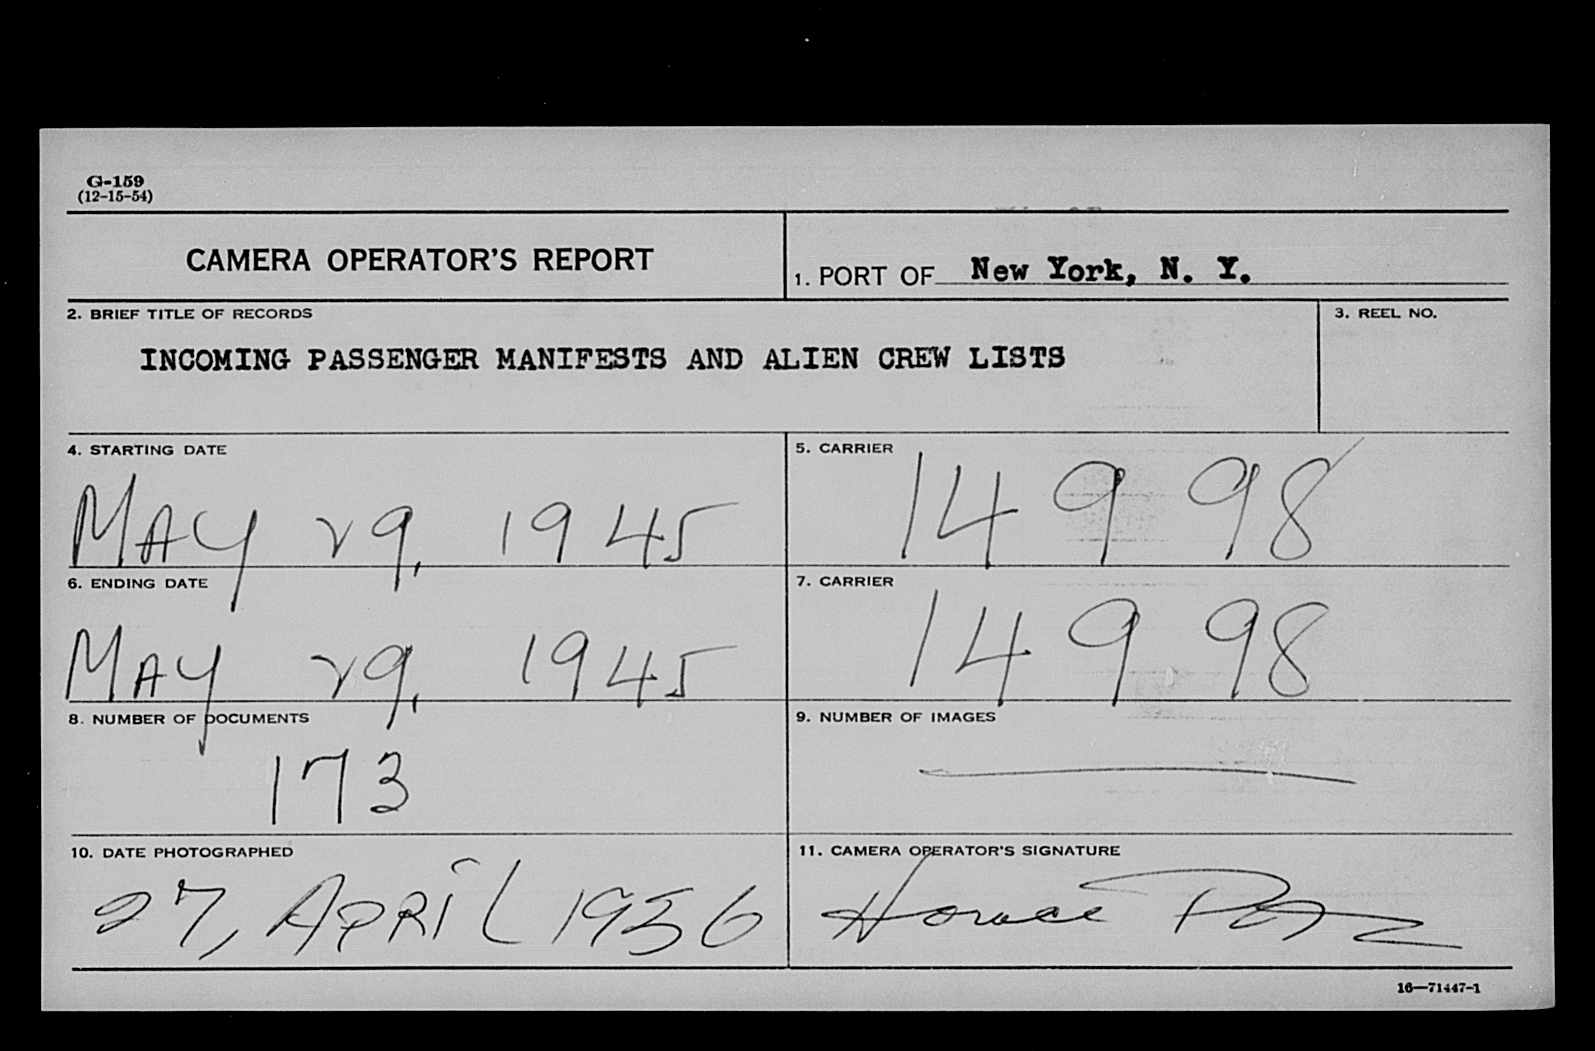 G-159
(12-15-54)
CAMERA OPERATOR'S REPORT
1. PORT OF New York, N. Y.
2. BRIEF TITLE OF RECORDS
3. REEL NO.
INCOMING PASSENGER MANIFESTS AND ALIEN CREW LISTS
4. STARTING DATE
5. CARRIER
MAY 29, 1945
14998
6. ENDING DATE
7. CARRIER
MAY 29, 1945
14998
8. NUMBER OF DOCUMENTS
9. NUMBER OF IMAGES
173
10. DATE PHOTOGRAPHED
11. CAMERA OPERATOR'S SIGNATURE
27, APRIL 1956
Horace
16—71447-1